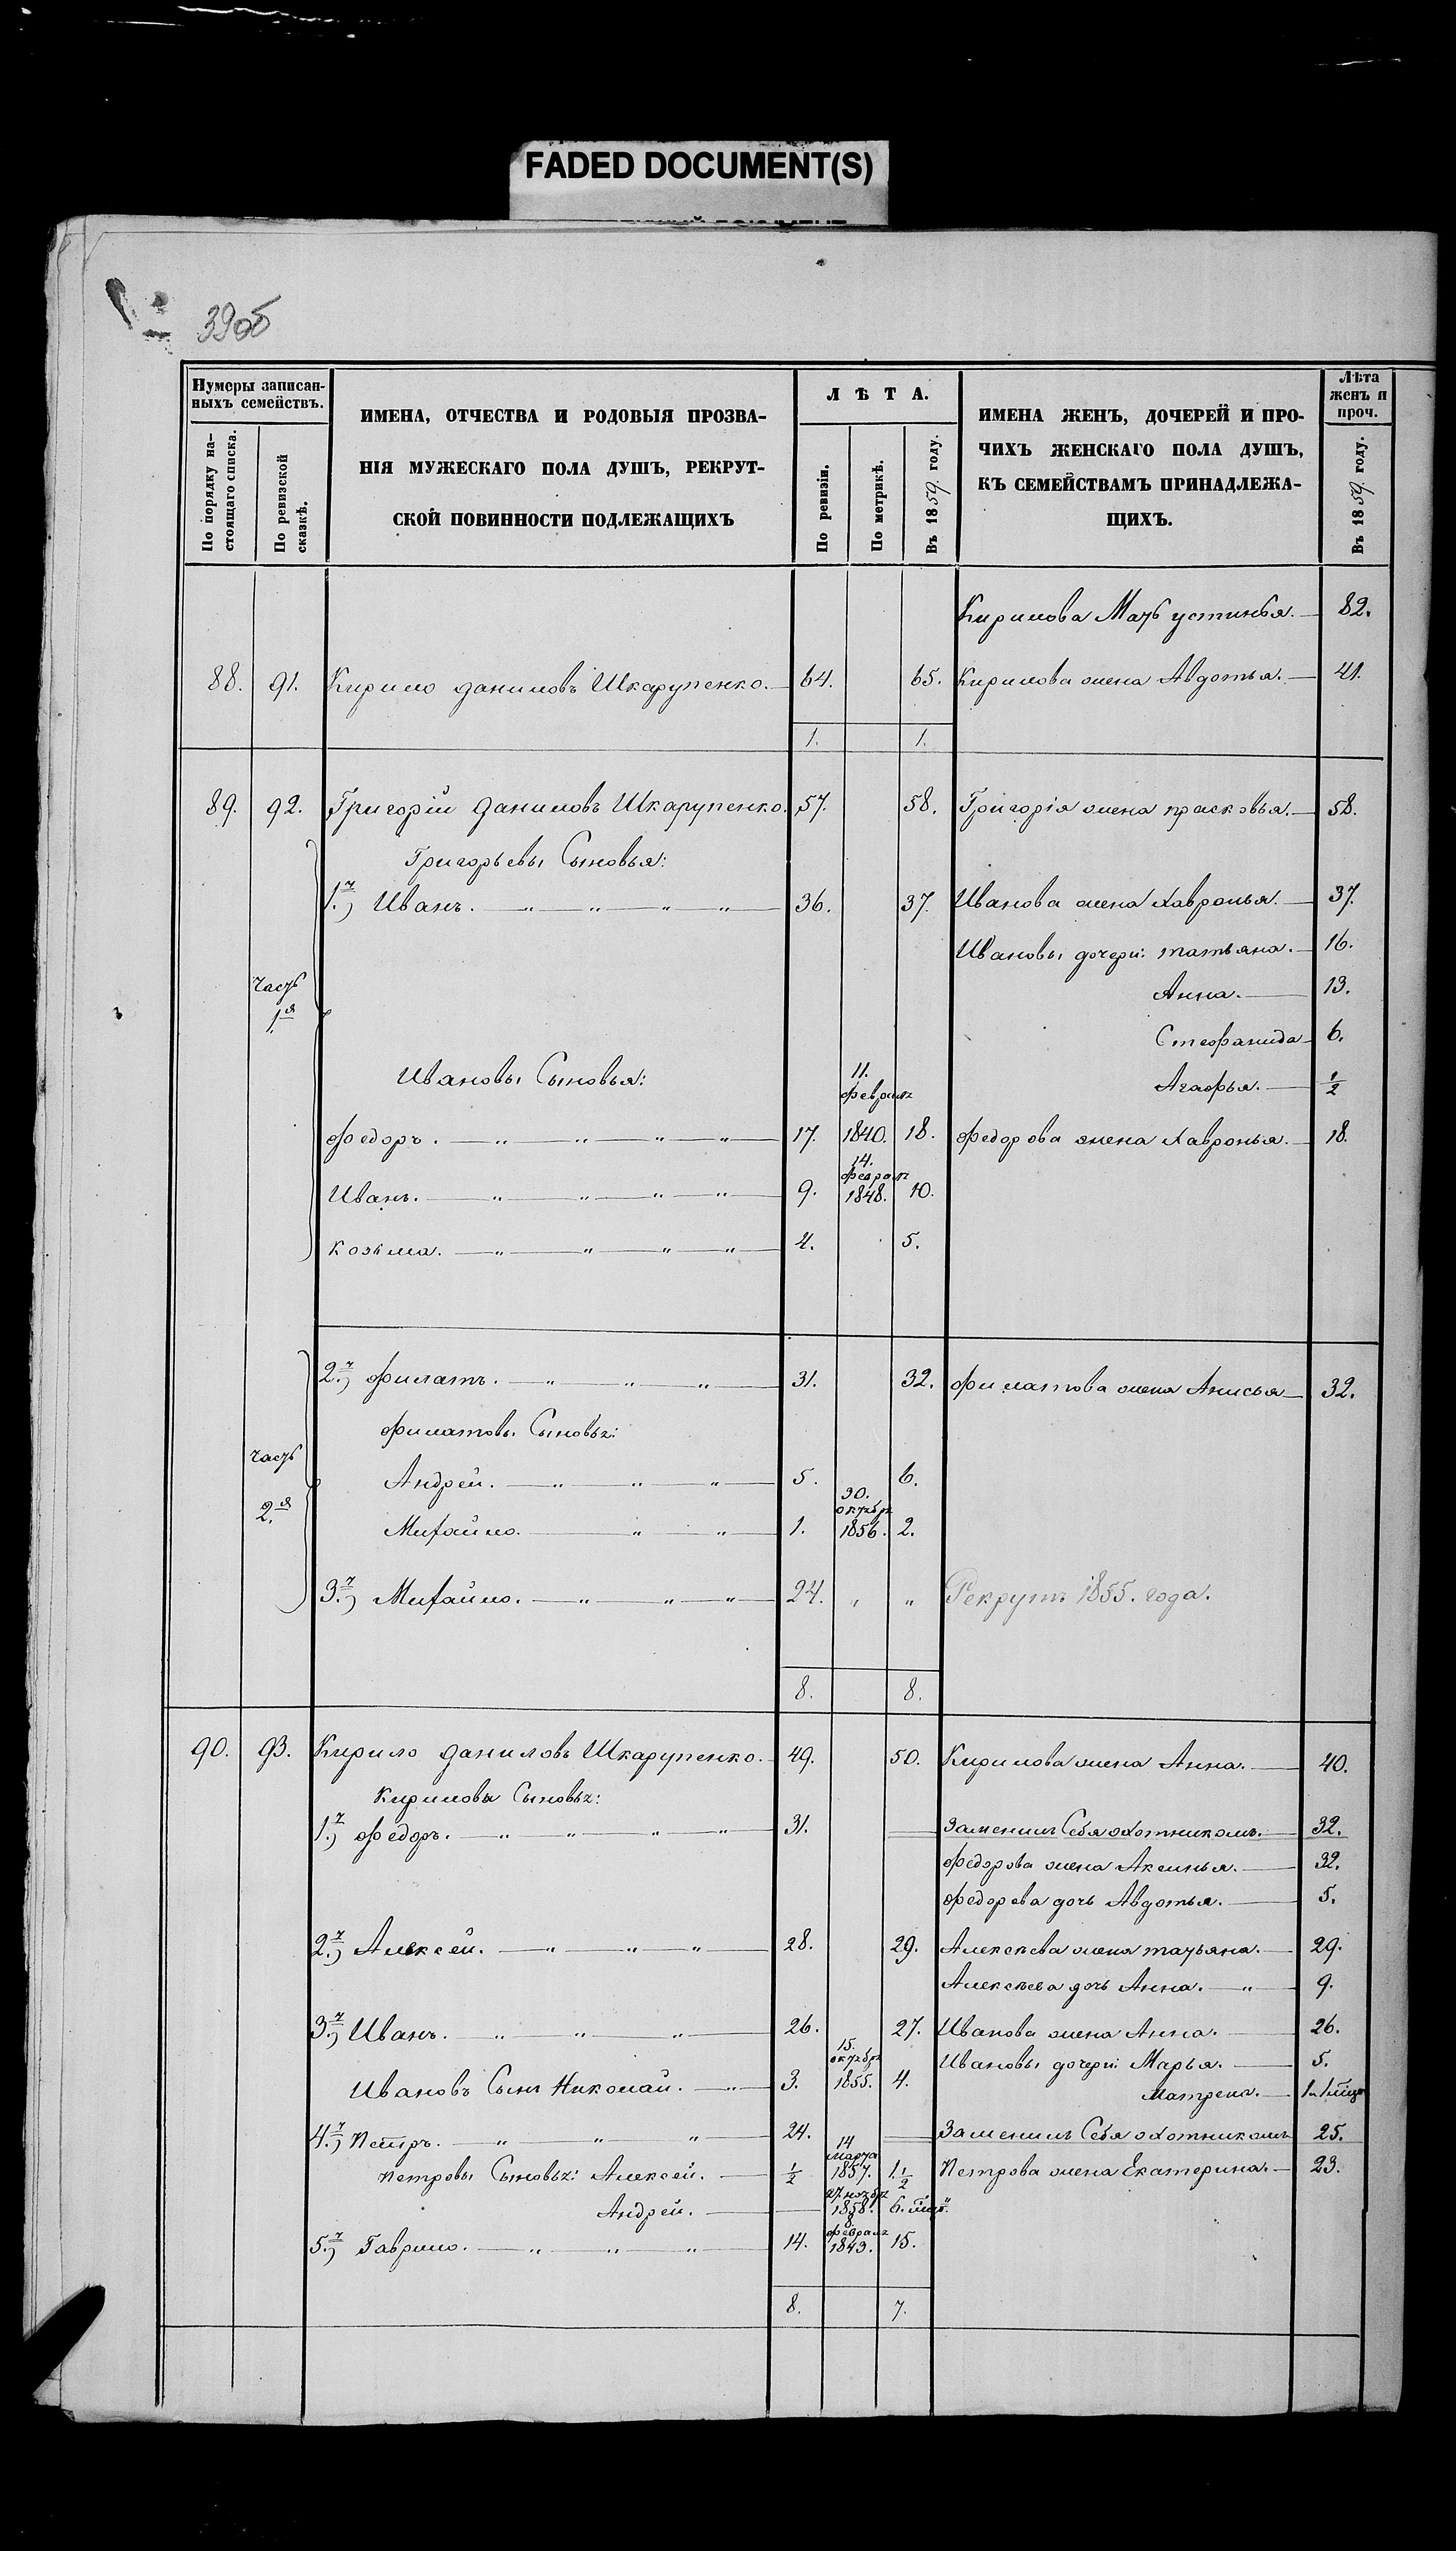 FADED DOCUMENT(S)
39об
Нумеры записан-
ныхъ семействъ.
По порядку на-
стоящаго списка.
По ревизской
сказкѣ.
ИМЕНА, ОТЧЕСТВА И РОДОВЫЯ ПРОЗВА-
НІЯ МУЖЕСКАГО ПОЛА ДУШЪ, РЕКРУТ-
СКОЙ ПОВИННОСТИ ПОДЛЕЖАЩИХЪ
ЛѢТА.
По ревизіи.
По метрикѣ.
Въ 1859 году.
ИМЕНА ЖЕНЪ, ДОЧЕРЕЙ И ПРО-
ЧИХЪ ЖЕНСКАГО ПОЛА ДУШЪ,
КЪ СЕМЕЙСТВАМЪ ПРИНАДЛЕЖА-
ЩИХЪ.
Лѣта
женъ и
проч.
Въ 1859 году.
Кирилова Мать устинья. 82.
88. 91. Кирило даниловъ Шкарупенко. 64. 65. Кирилова жена Авдотья. 41.
1. 1.
89. 92. Григорій даниловъ Шкарупенко. 57. 58. Григорія жена прасковья. 58.
Григорьевы Сыновья:
1.й) Иванъ. " " " " 36. 37. Иванова жена Хавронья. 37.
Ивановы дочери: татьяна. 16.
часть Анна. 13.
1.я
Стефанида 6.
Ивановы Сыновья: 11. февраля Агафья. 1/2
федоръ. " " " " 17. 1840. 18. федорова жена Хавронья. 18.
14. февраля
Иванъ. " " " " 9. 1848. 10.
козьма. " " " " 4. 5.
2.й) филатъ. " " " 31. 32. филатова жена Анисья 32.
филатовы Сыновья:
часть
Андрей. " " " 5. 6.
2.я
30. октября
Михайло. " " 1. 1856. 2.
3.й) Михайло. " " " 24. " " Рекрутъ 1855. года.
8. 8.
90. 93. Кирило даниловъ Шкарупенко. 49. 50. Кирилова жена Анна. 40.
Кириловы Сыновья:
1.й) федоръ. " " " " 31. Заменилъ Себя охотникомъ. 32.
федорова жена Аксинья. 32.
федорова дочь Авдотья. 5.
2.й) Алексей. " " " 28. 29. Алексеева жена татьяна. 29.
Алексеева дочь Анна. " 9.
3.й) Иванъ. " " " 26. 27. Иванова жена Анна. 26.
15. октября Ивановы дочери: Марья. 5.
Ивановъ Сынъ Николай. " 3. 1855. 4.
Матрена.
4.й) Петръ. " " " 24. Заменилъ Себя охотникомъ 25.
14 марта
петровы Сыновья: Алексей. 1/2 1857. 1 1/2 Петрова жена Екатерина. 23.
27. ноября
Андрей. 1858. 6. мец.
8. февраля
5.й) Гаврило. " " " 14. 1843. 15.
8. 7.